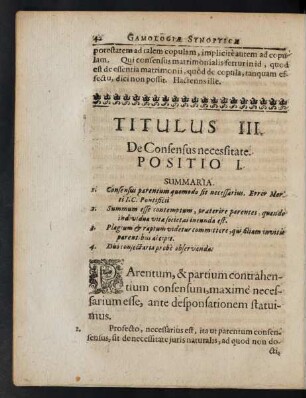 42 GAMOLOGIÆ SYNOPTICÆ
potestatem ad talem copulam, implicitè autem ad copu-
lam. Qui consensus matrimonialis fertur in id, quod
est de essentia matrimonii, quòd de copula, tanquam ef-
fectu, dici non possit. Hactenus ille.
TITULUS III.
De Consensus necessitate.
POSITIO I.
SUMMARIA.
1. Consensus parentum quomodo sit necessarius. Error
ti I.C. Pontificii
2. Summum esse contemptum, præterire parentes, quando
individua vitæ societas ineunda est.
3. Plagium & raptum videtur committere, qui filiam invitis
parentibus accipit.
4. Duo consectaria probè observanda.
PArentum, & partium contrahen-
tium consensum, maximè neces-
sarium esse, ante desponsationem statui-
mus.
2. Profecto, necessarius est, ita ut parentum consen-
sensus, sit de necessitate juris naturalis, ad quod non do-
cti,